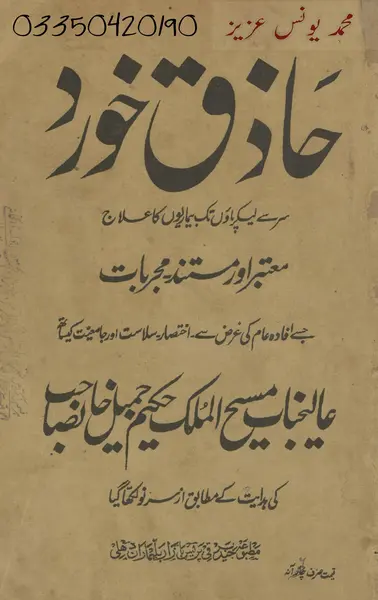 03350420190 محمد یونس عزیز
حاذق خورد
سر سے لیکر پاؤں تک بیماریوں کا علاج
معتبر اور مستند مجربات
جسے افادہ عام کی غرض سے۔ اختصار۔ سلاست اور جامعیت کیساتھ
عالیجناب مسیح الملک حکیم جمیل خانصاحب
کی ہدایت کے مطابق از سر نو لکھا گیا
پریس بازار بلیماران دہلی
قیمت صرف آنہ